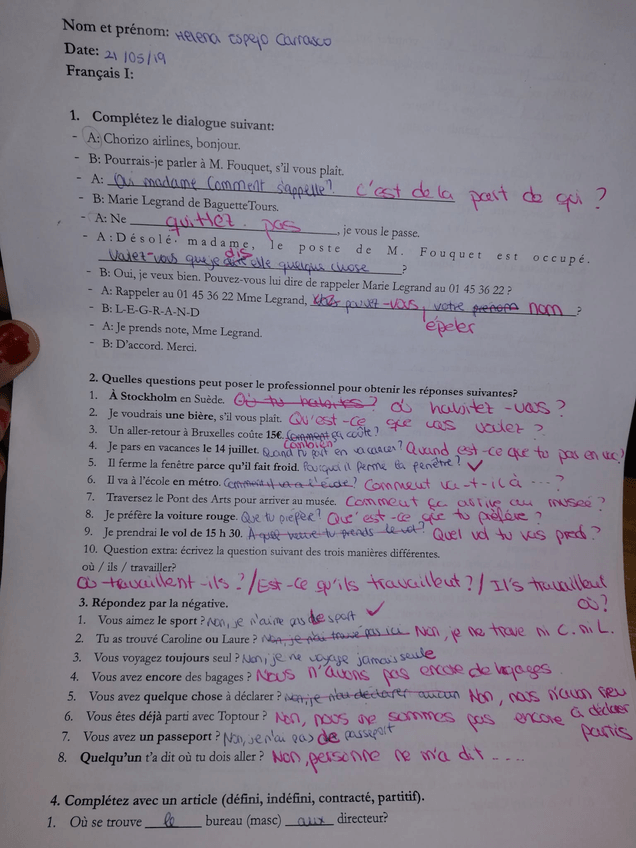 Nom et prénom: Helena Espejo Carrasco
Date: 21/05/19
Français I:
1. Complétez le dialogue suivant:
- A: Chorizo airlines, bonjour.
- B: Pourrais-je parler à M. Fouquet, s'il vous plait.
- A: Oui madame Comment s'appelle? C'est de la part de qui ?
- B: Marie Legrand de BaguetteTours.
- A: Ne quittez pas, je vous le passe.
- A : Désolé. madame, le poste de M. Fouquet est occupé.
Valez-vous que je dis elle quelque chose ?
- B: Oui, je veux bien. Pouvez-vous lui dire de rappeler Marie Legrand au 01 45 36 22 ?
- A: Rappeler au 01 45 36 22 Mme Legrand, pouvez-vous, votre prenom nom ?
épeler
- B: L-E-G-R-A-N-D
- A: Je prends note, Mme Legrand.
- B: D'accord. Merci.
2. Quelles questions peut poser le professionnel pour obtenir les réponses suivantes?
1. À Stockholm en Suède. Où tu habites ? Où habitez-vous ?
2. Je voudrais une bière, s'il vous plait. Qu'est-ce que vas valez ?
3. Un aller-retour à Bruxelles coûte 15€. Comment ça coûte?
combien
4. Je pars en vacances le 14 juillet. Quand tu part en vacances? Quand est-ce que tu pas en vac?
5. Il ferme la fenêtre parce qu'il fait froid. Pourquoi il ferme la fenêtre?
6. Il va à l'école en métro. Comment il va à l'école? Comment va-t-il à ...?
7. Traversez le Pont des Arts pour arriver au musée. Comment ça arrive au museé?
8. Je préfère la voiture rouge. Que tu préfér? Que'est-ce que tu préfére?
9. Je prendrai le vol de 15 h 30. A quel tu prends le vol? Quel vol tu vas prend.?
10. Question extra: écrivez la question suivant des trois manières différentes.
où / ils / travailler?
Où travaillent-ils?/Est-ce qu'ils travaillent?/ Il's travaillent
où?
3. Répondez par la négative.
1. Vous aimez le sport ? Non, je n'aime pas de sport.
2. Tu as trouvé Caroline ou Laure ? Non, je ne trouve ni C. ni L.
3. Vous voyagez toujours seul ? Non, je ne voyage jamais seule
4. Vous avez encore des bagages ? Nous n'avons pas encore de bagages
5. Vous avez quelque chose à déclarer ? Non, je n'ai déclarer aucun Non, nous n'avon
à déclarer
6. Vous êtes déjà parti avec Toptour ? Non, nous ne sommes pas encore
partis
7. Vous avez un passeport ? Non, je n'ai pas de passeport
8. Quelqu'un t'a dit où tu dois aller ? Non, personne ne m'a dit ....
4. Complétez avec un article (défini, indéfini, contracté, partitif).
1. Où se trouve le bureau (masc) aux directeur?